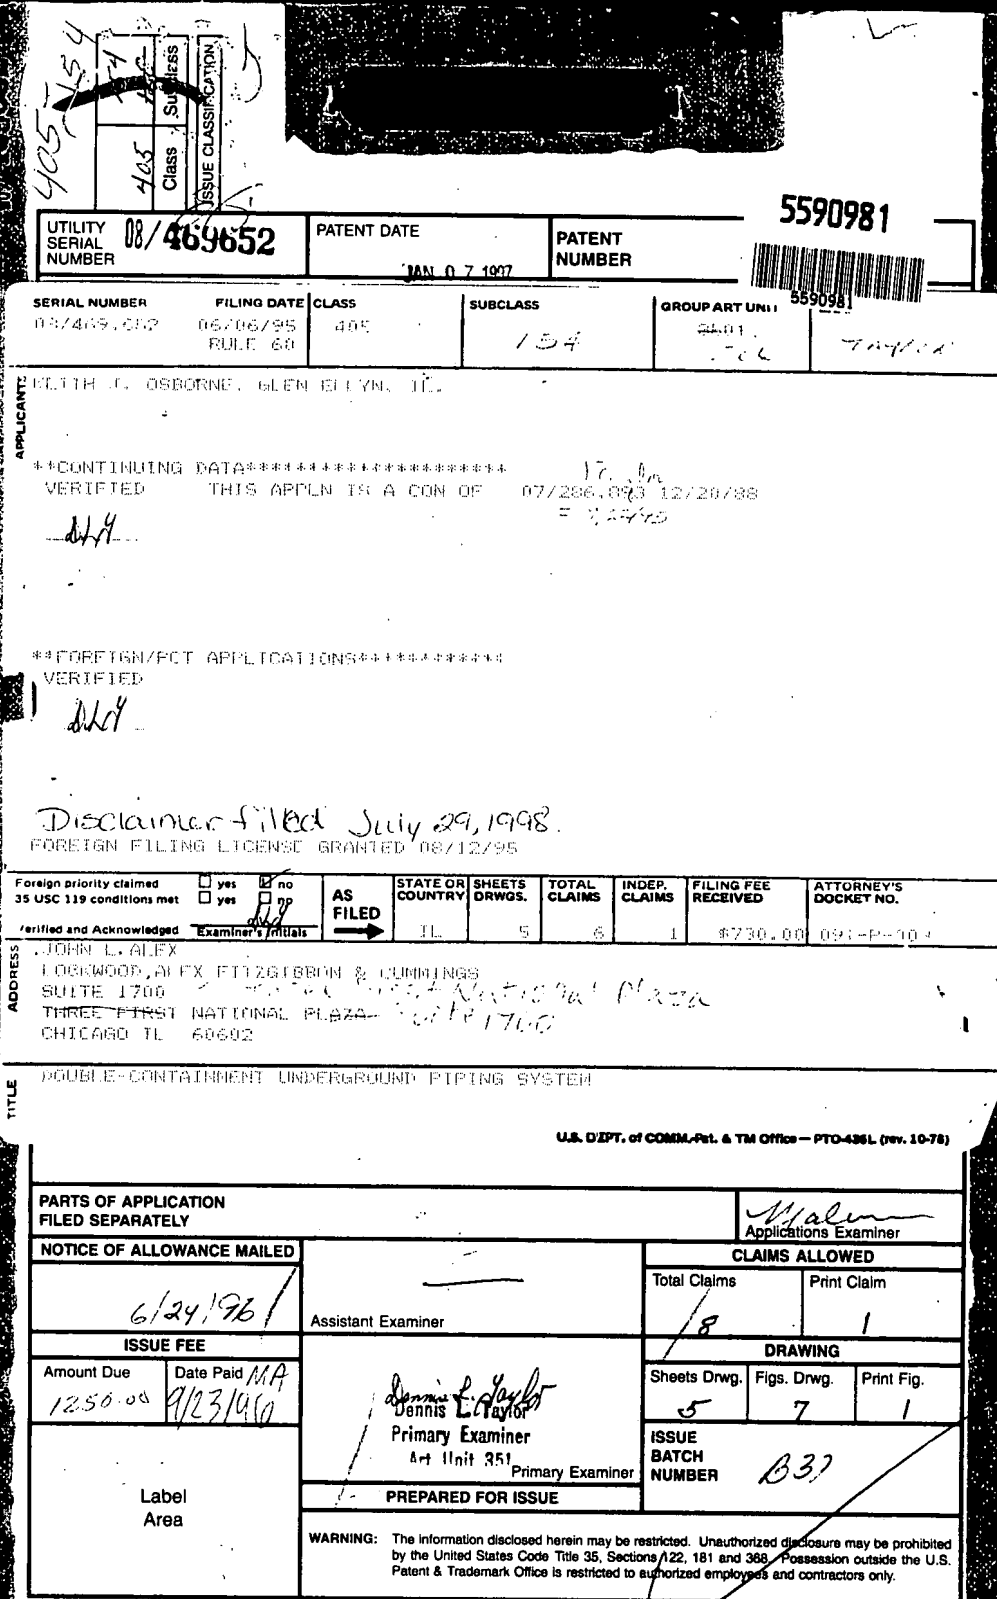 405-154
405
Class
Subclass
ISSUE CLASSIFICATION
UTILITY SERIAL NUMBER 08/469652
PATENT DATE JAN 07 1997
PATENT NUMBER 5590981
5590981
SERIAL NUMBER FILING DATE CLASS SUBCLASS GROUP ART UNIT
08/469,652 06/06/95 405 154
RULE 60
APPLICANTS
KEITH J. OSBORNE, GLEN ELLYN, IL.
**CONTINUING DATA**********************
VERIFIED THIS APPLN IS A CON OF 07/286,893 12/20/88
DLT
**FOREIGN/PCT APPLICATIONS************
VERIFIED
DLT
Disclaimer filed July 29, 1998.
FOREIGN FILING LICENSE GRANTED 08/12/95
Foreign priority claimed yes no
35 USC 119 conditions met yes no
Verified and Acknowledged Examiner's Initials DLT
AS FILED
STATE OR COUNTRY SHEETS DRWGS. TOTAL CLAIMS INDEP. CLAIMS FILING FEE RECEIVED ATTORNEY'S DOCKET NO.
IL 5 6 1 $730.00
ADDRESS
JOHN L. ALEX
LOCKWOOD, ALEX FITZGIBBON & CUMMINGS
SUITE 1700
THREE FIRST NATIONAL PLAZA
First National Plaza
Suite 1700
CHICAGO IL 60602
TITLE
DOUBLE-CONTAINMENT UNDERGROUND PIPING SYSTEM
U.S. DEPT. of COMM.-Pat. & TM Office — PTO-436L (rev. 10-78)
PARTS OF APPLICATION
FILED SEPARATELY
Applications Examiner
NOTICE OF ALLOWANCE MAILED
6/24/96
Assistant Examiner
CLAIMS ALLOWED
Total Claims Print Claim
8 1
ISSUE FEE
Amount Due Date Paid MA
1250.00 9/23/96
Dennis L. Taylor
Dennis L. Taylor
Primary Examiner
Art Unit 351
Primary Examiner
DRAWING
Sheets Drwg. Figs. Drwg. Print Fig.
5 7 1
ISSUE
BATCH
NUMBER B37
Label
Area
PREPARED FOR ISSUE
WARNING: The information disclosed herein may be restricted. Unauthorized disclosure may be prohibited
by the United States Code Title 35, Sections 122, 181 and 368. Possession outside the U.S.
Patent & Trademark Office is restricted to authorized employees and contractors only.